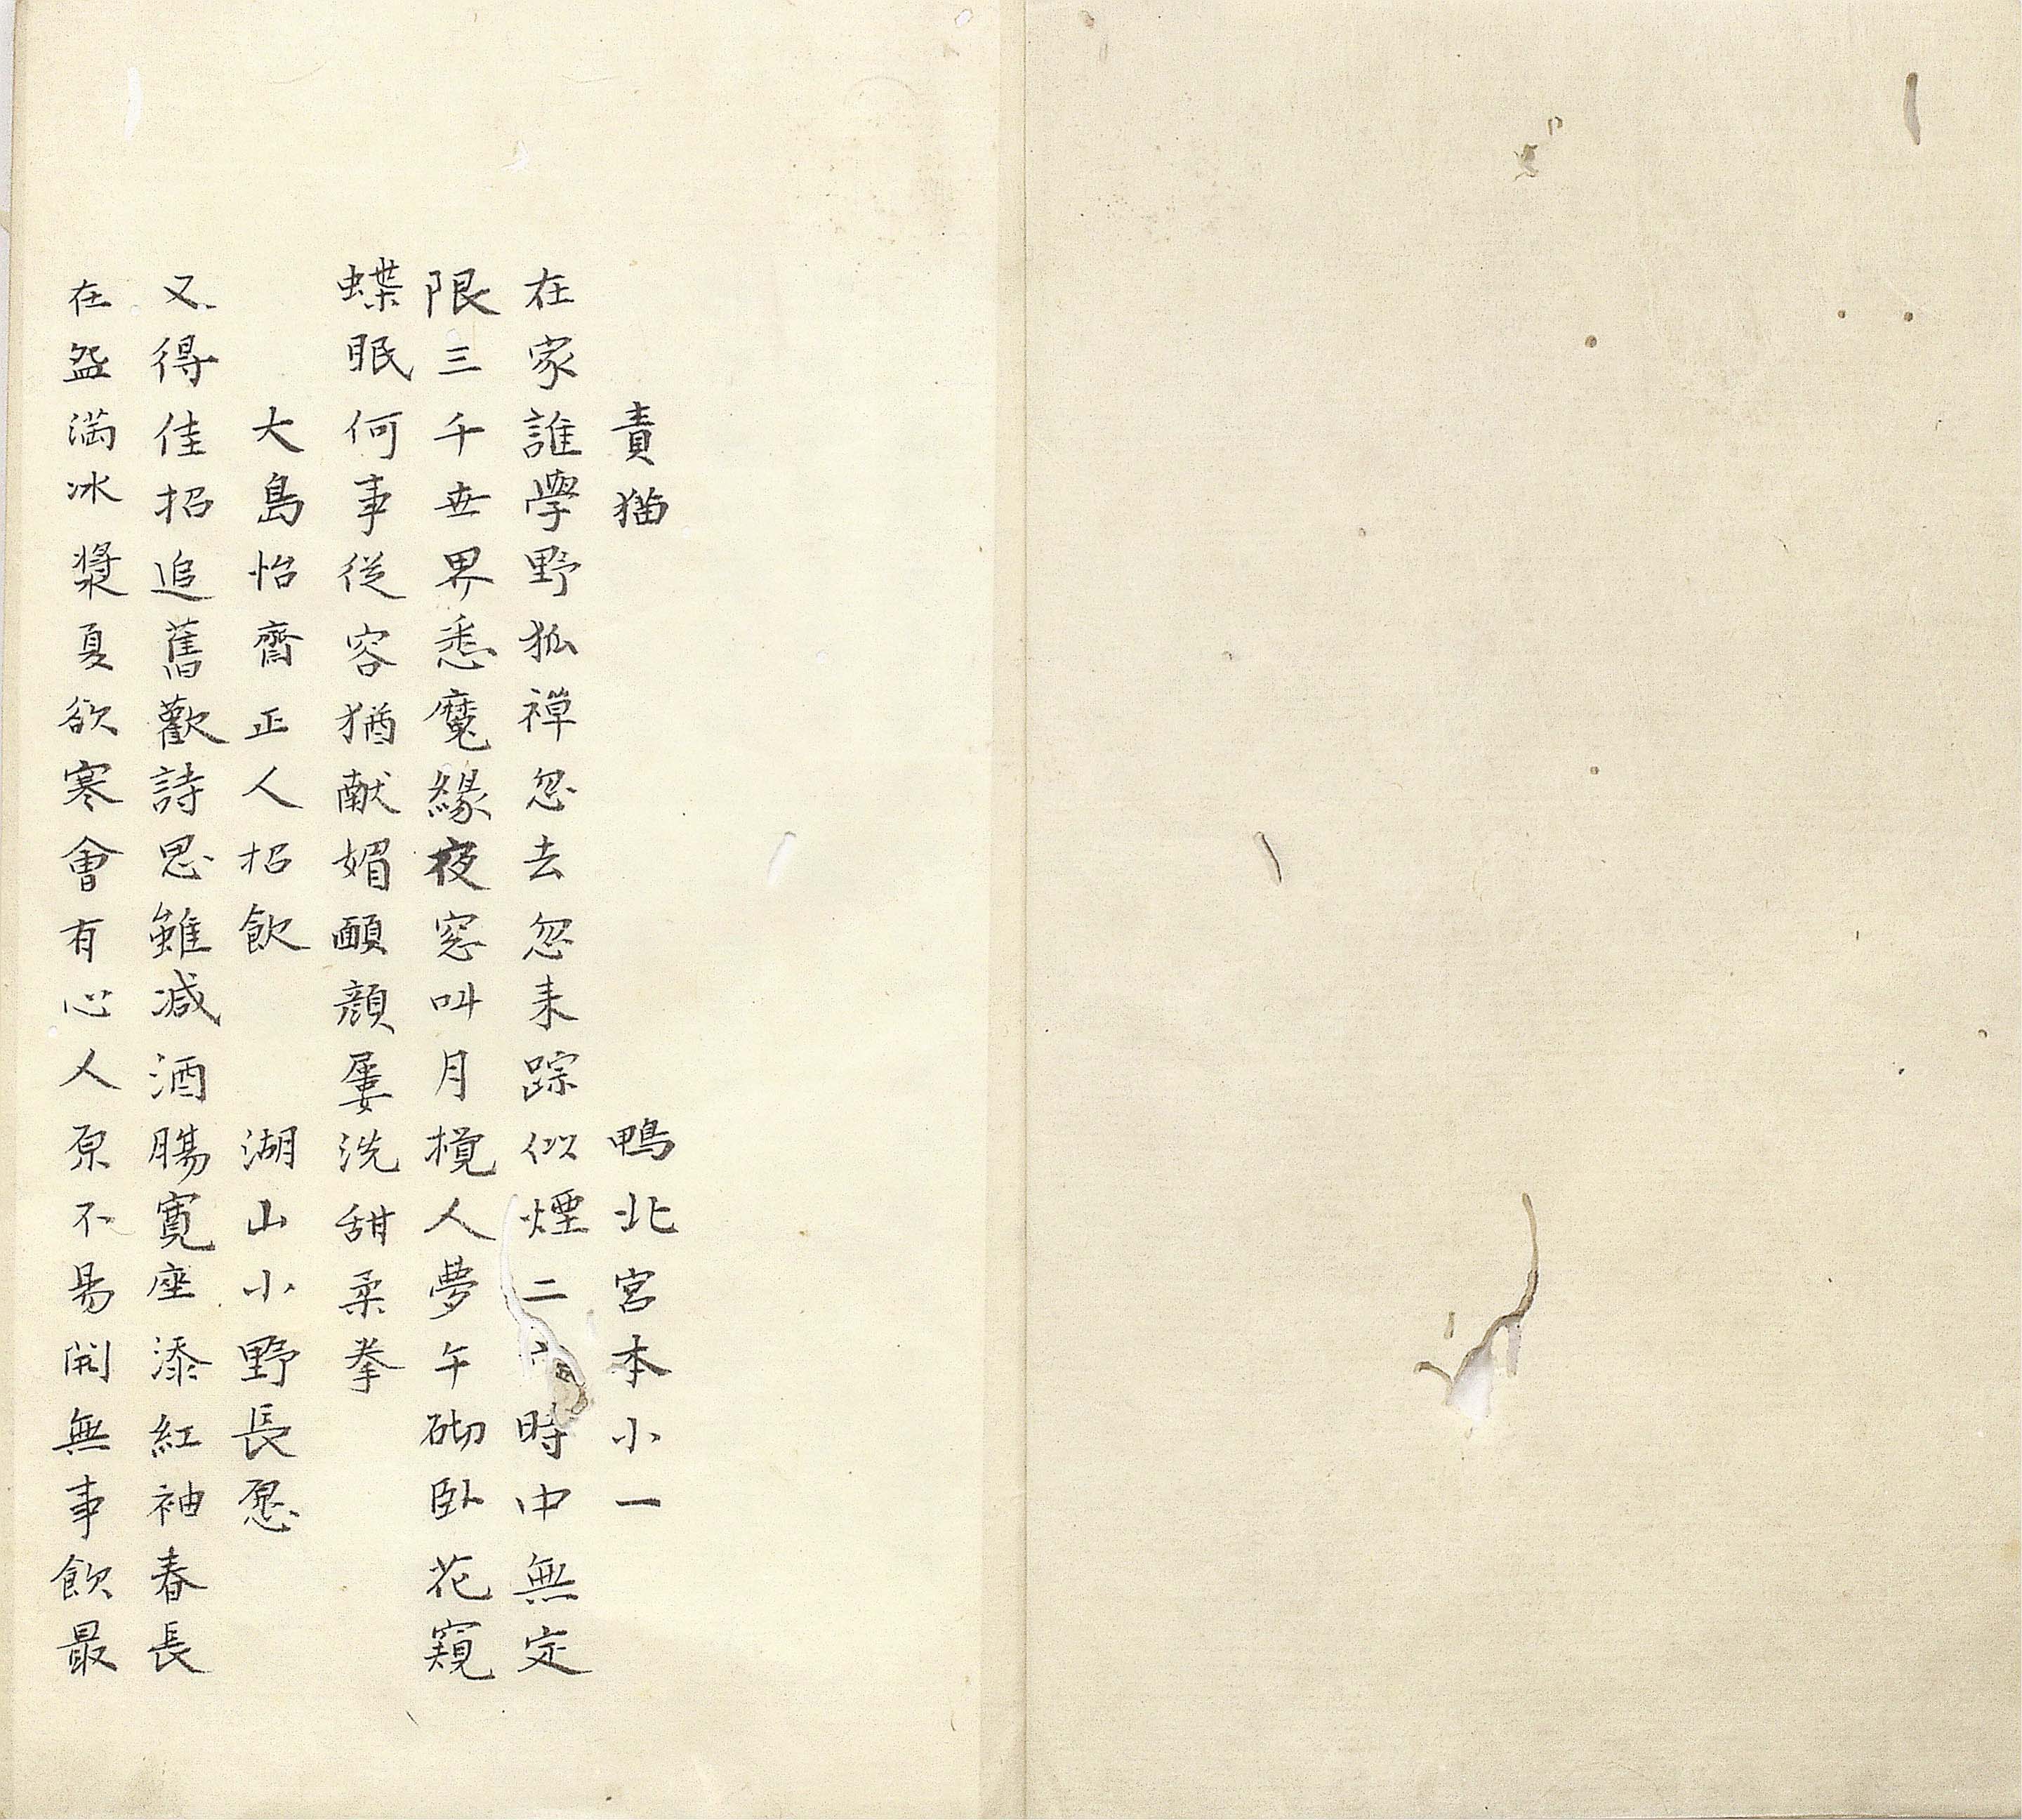 責猫 鴨北宮本小一
在家誰學野狐禅忽去忽来踪似煙二六時中無定
限三千世界悉魔緣夜窓叫月攪人夢午砌臥花窺
蝶眠何事從容猶献媚靦顔屢洗甜柔拳
大島怡齋正人招飲 湖山小野長愿
又得佳招追舊歡詩思雖减酒腸寬座添紅袖春長
在盌満冰漿夏欲寒會有心人原不易閑無事飲最